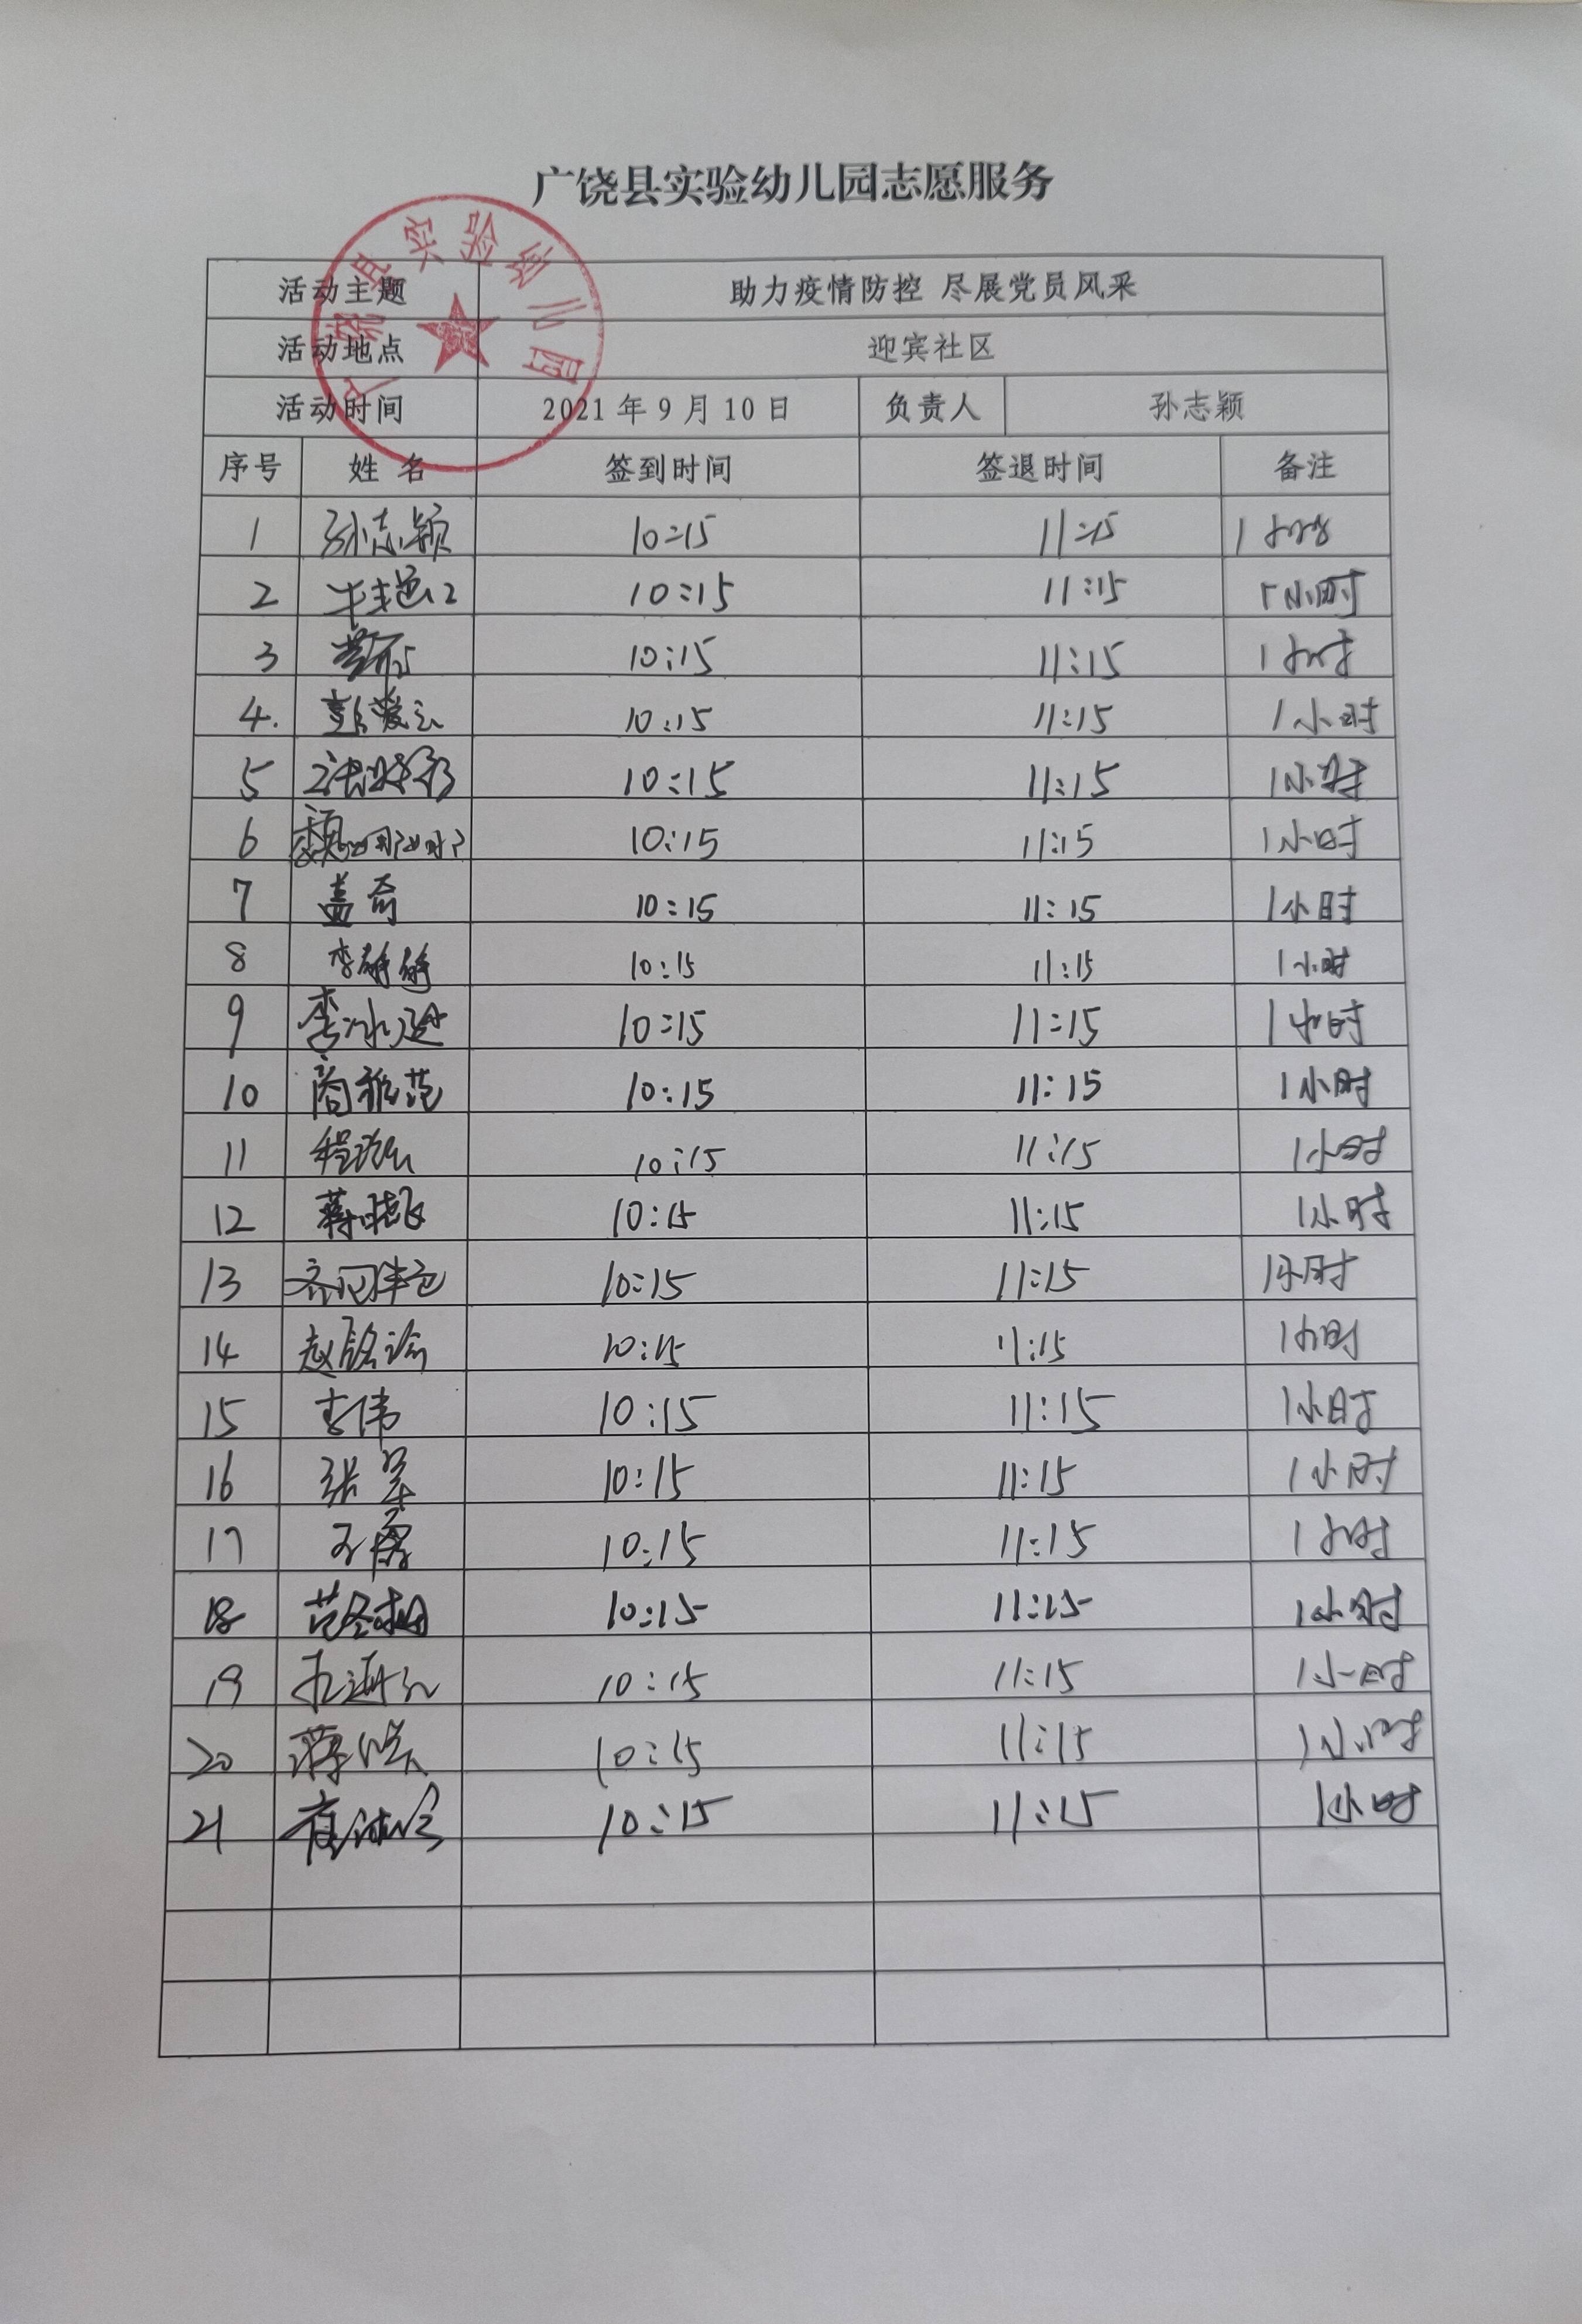 广饶县实验幼儿园志愿服务
广饶县实验幼儿园
活动主题 助力疫情防控 尽展党员风采
活动地点 迎宾社区
活动时间 2021年9月10日 负责人 孙志颖
序号 姓名 签到时间 签退时间 备注
1 孙志颖 10:15 11:15 1小时
2 10:15 11:15 1小时
3 10:15 11:15 1小时
4. 彭爱云 10:15 11:15 1小时
5 10:15 11:15 1小时
6 魏 10:15 11:15 1小时
7 盖奇 10:15 11:15 1小时
8 李静静 10:15 11:15 1小时
9 李冰 10:15 11:15 1小时
10 商雅范 10:15 11:15 1小时
11 程 10:15 11:15 1小时
12 蒋晓飞 10:15 11:15 1小时
13 齐 10:15 11:15 1小时
14 赵铭 10:15 11:15 1小时
15 李伟 10:15 11:15 1小时
16 张 10:15 11:15 1小时
17 10:15 11:15 1小时
18 范冬梅 10:15 11:15 1小时
19 10:15 11:15 1小时
20 10:15 11:15 1小时
21 10:15 11:15 1小时